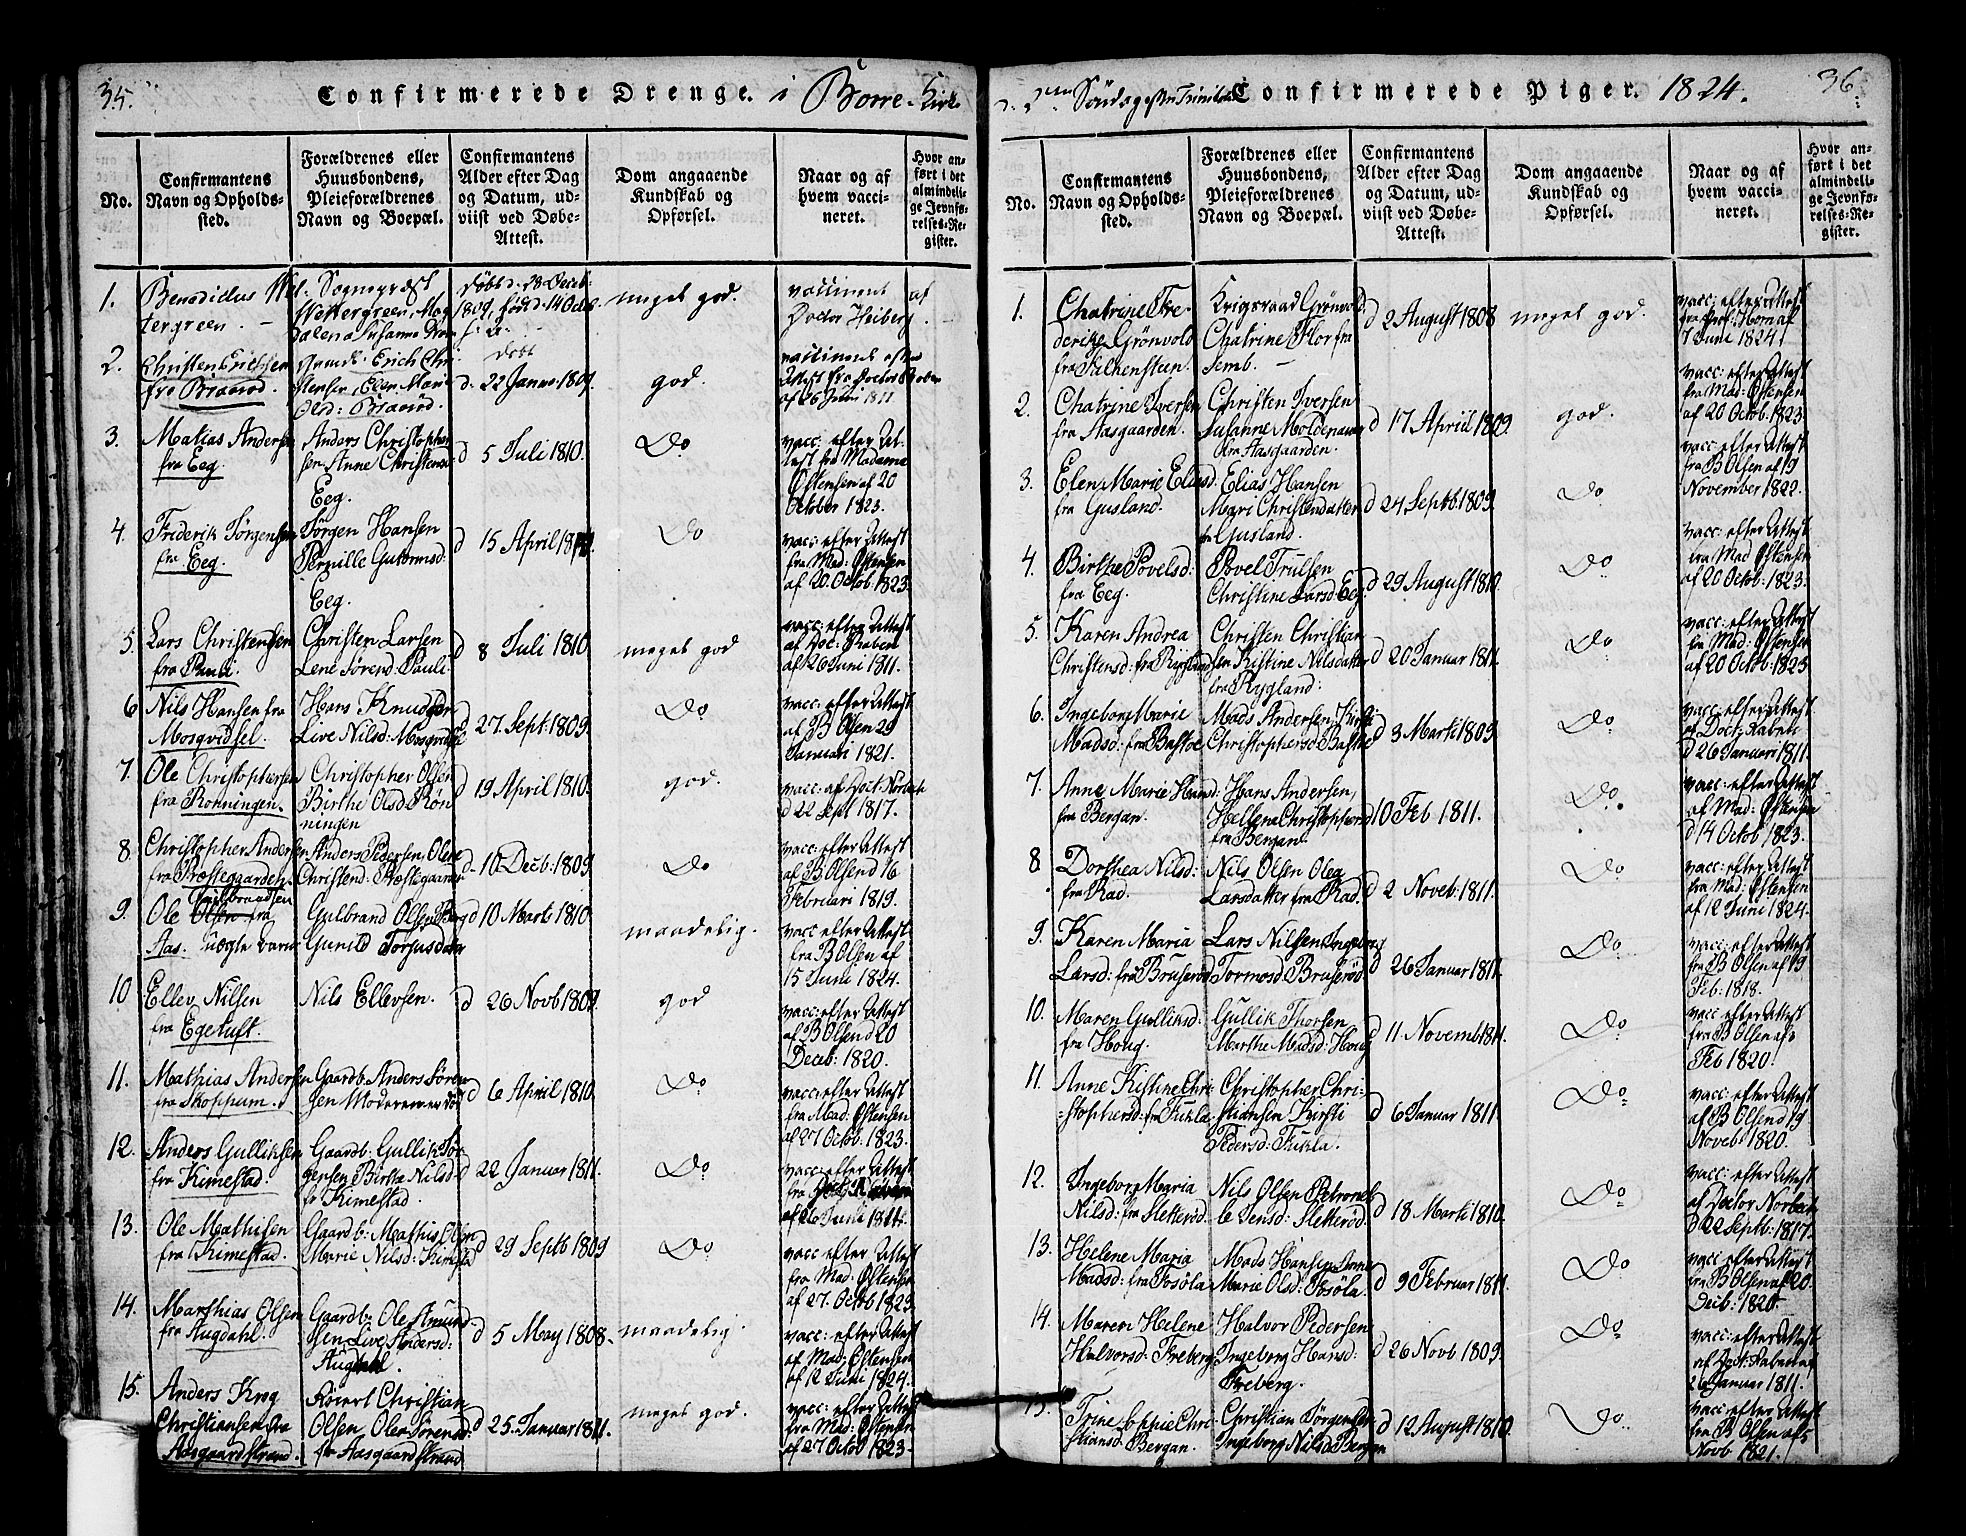 35.
Confirmerede Drenge. i Borre-Kirke
No.
Confirmantens
Navn og Opholds-
sted.
Forældrenes eller
Huusbondens,
Pleieforældrenes
Navn og Boepæl.
Confirmantens
Alder efter Dag
og Datum, ud-
viist ved Døbe-
Attest.
Dom angaaende
Kundskab og
Opførsel.
Naar og af
hvem vacci-
neret.
Hvor an-
ført i det
almindeli-
ge Jevnfø-
relses-Re-
gister.
1.
Benedictus Wet-
tergreen.
Sognepræst
Wettergreen, Mag-
dalena Susanna
Døbt d. 28 Decb.
1809, født d. 14 Octb.
meget god.
vaccineret af
Doctor Heiberg
2.
Christen Erichsen
fra Braarød.
Erich Chri-
stensen, Elen Marie
Olsd: Braarød.
døbt
d. 22 Januar 1809.
god.
vaccineret efter
Attest fra Doctor Graben
af 26 Juni 1811
3.
Matias Andersen
fra Eeg.
Anders Christopher-
sen Anne Christensd
Eeg.
d 5 Juli 1810.
Do
vacc: efter At-
test fra Madame
Østensen af 20
October 1823.
4.
Friderik Jørgensen
fra Eeg.
Jørgen Hansen
Pernille Guttormsd:
Eeg.
d 15 April
Do
vacc: efter Attest
fra Mad: Østensen
af 20 Octob. 1823.
5.
Lars Christensen
fra Pauli.
Christen Larsen
Lene Sørensd. Pauli
d 8 Juli 1810
meget god
vacc: efter Attest
af Doct: Graben
af 26 Juni 1811.
6
Nils Hansen fra
Mosqvidsel.
Hans Knudsen
Live Nilsd: Mosqvidsel
d 27 Sept: 1809.
Do
vacc: efter Attest
af B Olsen 29
Januari 1821.
7.
Ole Christophersen
fra Rønningen.
Christopher Olsen
Birthe Olsd Røn-
ningen
d 19 April 1810.
god.
vacc: af Doct: Norbech
d 22 Sept 1817.
8.
Christopher Andersen
fra Præstegaarden.
Anders Pedersen, Olene
Christend: Præstegaarden
d. 10 Decb: 1809
Do
vacc: efter Attest
af B Olsen d 16
Februari 1819.
9.
Gulbrandsen
Ole Olsen fra
Aas. uægte barn
Gulbrand Olsen Berg
Gunild Torgusdatter
d 10 Marti 1810.
maadelig.
vacc efter Attest
fra B Olsen af
15 Juni 1824.
10
Ellev Nilsen
fra Egetuft.
Nils Ellevsen.
d 26 Novb 1809.
god
vacc: efter Attest
af B Olsen d 20
Decb: 1820.
11.
Mathias Andersen
fra Skoppum.
Gaardb: Anders Søren-
sen Moderen er død
d 6 April 1810.
Do
vacc: efter Attest
fra Mad: Østensen
af 27 Octob. 1823.
12.
Anders Gulliksen
fra Kimestad.
Gaardb: Gullik Jør-
gensen Birthe Nilsd:
fr Kimestad.
d 22 Januar 1811.
Do
vacc: efter Attest
fra Doct. Raben
af 26 Juni 1811.
13.
Ole Mathisen
fra Kimestad.
Gaardb: Mathis Olsen
Marie Nilsd: Kimestad
d 29 Septb 1809
Do
vacc efter Attest
fra Mad: Østensen
af 27. Octb 1823.
14.
Matthias Olsen
fra Augdahl.
Gaardb: Ole Amund-
sen Live Andersd:
Augdahl.
d 5 May 1808.
maadelig.
vacc: efter Attest
af Mad: Østensen
af 12 Juni 1824.
15.
Anders Krog
Christiansen fra
Aasgaardstrand.
Christian
Olsen, Olea Sørensd:
fr Aasgaardstrand
d 25. Januar 1811.
meget god.
vacc: efter Attest
fra Mad: Østensen
af 27 Octob 1823.
d. 2den Søndag efter Trinitatis Confirmerede Piger. 1824.
36.
No.
Confirmantens
Navn og Opholds-
sted.
Forældrenes eller
Huusbondens,
Pleieforældrenes
Navn og Boepæl.
Confirmantens
Alder efter Dag
og Datum, ud-
viist ved Døbe-
Attest.
Dom angaaende
Kundskab og
Opførsel.
Naar og af
hvem vacci-
neret.
Hvor an-
ført i det
almindeli-
ge Jevnfø-
relses-Re-
gister.
1.
Chatrine Fre-
derikke Grønvold
fra Falkensteen.
Krigsraad Grønvold
Chatrine Flor fra
Semb.
d 2 August 1808
meget god.
vacc: efter Attest
fra Prof: Horn af
7 Juni 1824.
2.
Chatrine Iversen
fra Aasgaarden.
Christen Iversen
Susanne Moldenauer
fra Aasgaarden.
d 17 April 1809.
god.
vacc: efter Attest
fra Mad: Østensen
af 20 Octob. 1823.
3.
Elen Marie Eliasd:
fra Gusland.
Elias Hansen
Mari Christensdatter
fra Gusland.
d 24 Septb. 1809.
Do
vacc: efter Attest
fra B Olsen af 19
November 1822.
4.
Birthe Povelsd:
fra Eeg.
Povel Trulsen
Christine Larsd Eeg.
d 29 August 1810.
Do
vacc: efter Attest
fra Mad Østensen
af 20 Octob. 1823.
5.
Karen Andrea
Christensd: fra Rygland
Christen Christian-
sen Kistine Nilsdatter
fra Rygland:
d 20 Januar 1811.
Do
vacc: efter Attest
fra Mad: Østensen
af 20 Octb: 1823
6.
Ingeborg Marie
Madsd: fra Bastøe
Mads Andersen, Kirsti
Christophersd Bastøe
d 3 Marti 1809.
Do
vacc: efter Attest
af Doct. Rabens
d 26 Januari 1811.
7.
Anne Marie Hansd:
fra Bergan.
Hans Andersen,
Hellena Christophersd
fra Bergan.
d 10 Feb 1811.
Do.
vacc: efter Attest
af Mad: Østensen
d 14 Octob 1823.
8
Dorthea Nilsd:
fra Rad.
Nils Olsen Olea
Larsdatter fra Rad.
d 2 Noveb: 1811.
Do
vacc: efter Attest
fra Mad: Østensen
af 12 Juni 1824.
9.
Karen Maria
Larsd: fra Bruserød
Lars Nilsen Ingeborg
Tormosd Bruserød
d 26 Januar 1811.
Do
vacc: efter Attest
fra B Olsen af 19
Feb: 1818.
10.
Maren Gulliksd:
fra Houg.
Gullik Thorsen
Marthe Madsd: Houg
d 11 Novemb 1811.
Do
vacc efter Attest
fra B Olsen af
Feb 1820.
11.
Anne Kistine Chri-
stophersd: fra Fuhla
Christopher Chri-
stiansen Kirsti
Pedersd: Fuhla.
d 6 Januar 1811
Do
vacc: efter Attest
af B Olsen d 19
Noveb 1820.
12.
Ingeborg Maria
Nilsd: fra Sletterød
Nils Olsen Petronel-
le Jensd: Sletterød
d 18 Marti 1810.
Do
vacc: efter Attest
af Doctor Norbech
d 22 Septb: 1817.
13.
Helene Maria
Madsd: fra Fosøla
Mads Hansen Anne
Marie Olsd: Fosøla
d 9 Februar 1811.
Do
vacc: efter Attest
fra B Olsen af 20.
Decb: 1820.
14.
Maren Helene
Halvorsd: Freberg
Halvor Pedersen
Ingeborg Hansd:
Freberg.
d 26 Novb 1809.
Do
vacc: efter Attest
af Doct: Raben af
26 Januar 1811.
15.
Trine Sophie Chri-
stiansd: Bergan.
Christian Jørgensen
Ingeborg Nilsd Bergan
d 12 August 1810.
Do
vacc: efter Attest
fra B Olsen af 5
Novb 1821.